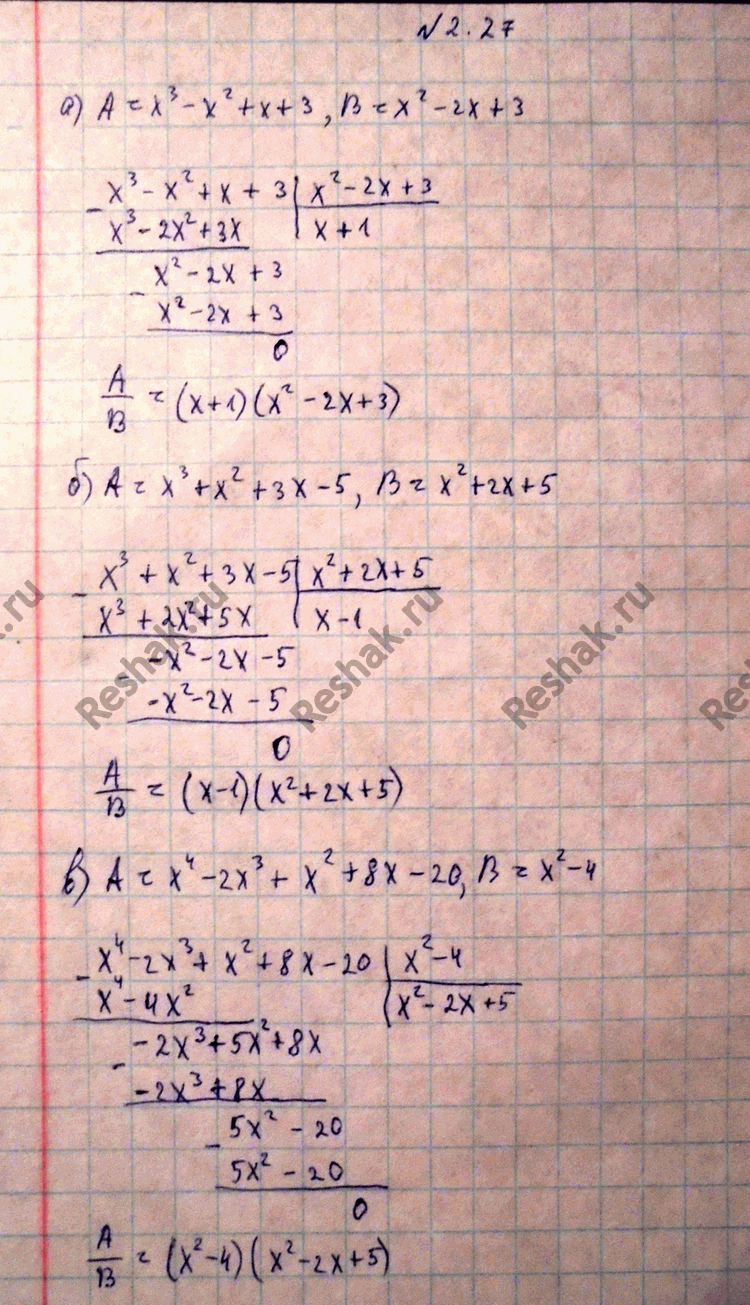 № 2.27
а) A = x³ - x² + x + 3, B = x² - 2x + 3
x³ - x² + x + 3 | x² - 2x + 3
x³ - 2x² + 3x | x + 1
x² - 2x + 3
x² - 2x + 3
0
A/B = (x+1)(x² - 2x + 3)
б) A = x³ + x² + 3x - 5, B = x² + 2x + 5
x³ + x² + 3x - 5 | x² + 2x + 5
x³ + 2x² + 5x | x - 1
-x² - 2x - 5
-x² - 2x - 5
0
A/B = (x-1)(x² + 2x + 5)
в) A = x⁴ - 2x³ + x² + 8x - 20, B = x² - 4
x⁴ - 2x³ + x² + 8x - 20 | x² - 4
x⁴ - 4x² | x² - 2x + 5
-2x³ + 5x² + 8x
-2x³ + 8x
5x² - 20
5x² - 20
0
A/B = (x² - 4)(x² - 2x + 5)
Reshak.ru
Reshak.ru
Reshak.ru